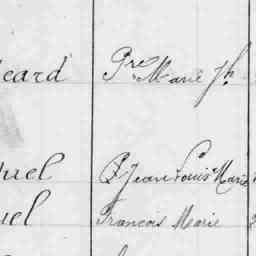 eard Pre Marie Jh
uel P Jean Louis Marie
uel Francois Marie